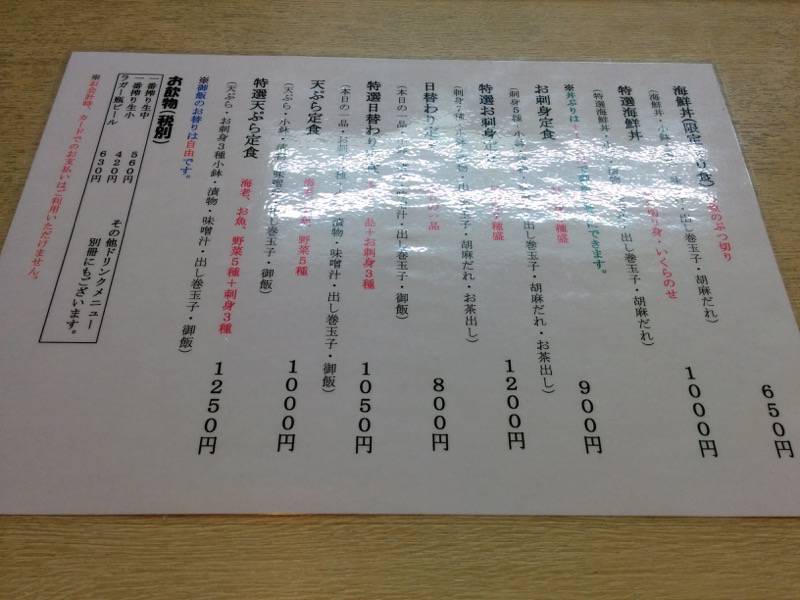 海鮮丼(限定 食) のぶつ切り 650円
(海鮮丼・小鉢 味 汁・出し巻玉子・胡麻だれ)
特選海鮮丼 切り身・いくらのせ 1000円
(特選海鮮丼・ 汁・出し巻玉子・胡麻だれ)
※丼ぶりは+ できます。
お刺身定食 種盛 900円
(刺身5種・小 し巻玉子・胡麻だれ・お茶出し)
特選お刺身定 種盛 1200円
(刺身7種・小鉢 物・出し巻玉子・胡麻だれ・お茶出し)
日替わり定 の一品 800円
(本日の一品・ 味噌汁・出し巻玉子・御飯)
特選日替わり 食 品+お刺身3種 1050円
(本日の一品・お刺 漬物・味噌汁・出し巻玉子・御飯)
天ぷら定食 野菜5種 1000円
(天ぷら・小鉢・漬物・味噌汁・出し巻玉子・御飯)
特選天ぷら定食 海老、お魚、野菜5種+刺身3種 1250円
(天ぷら・お刺身3種小鉢・漬物・味噌汁・出し巻玉子・御飯)
※御飯のお替りは自由です。
お飲物(税別)
一番搾り生中 560円
一番搾り生小 420円
ラガー瓶ビール 630円
その他ドリンクメニュー
別冊にもございます。
※お会計時、カードでのお支払いはご利用いただけません。